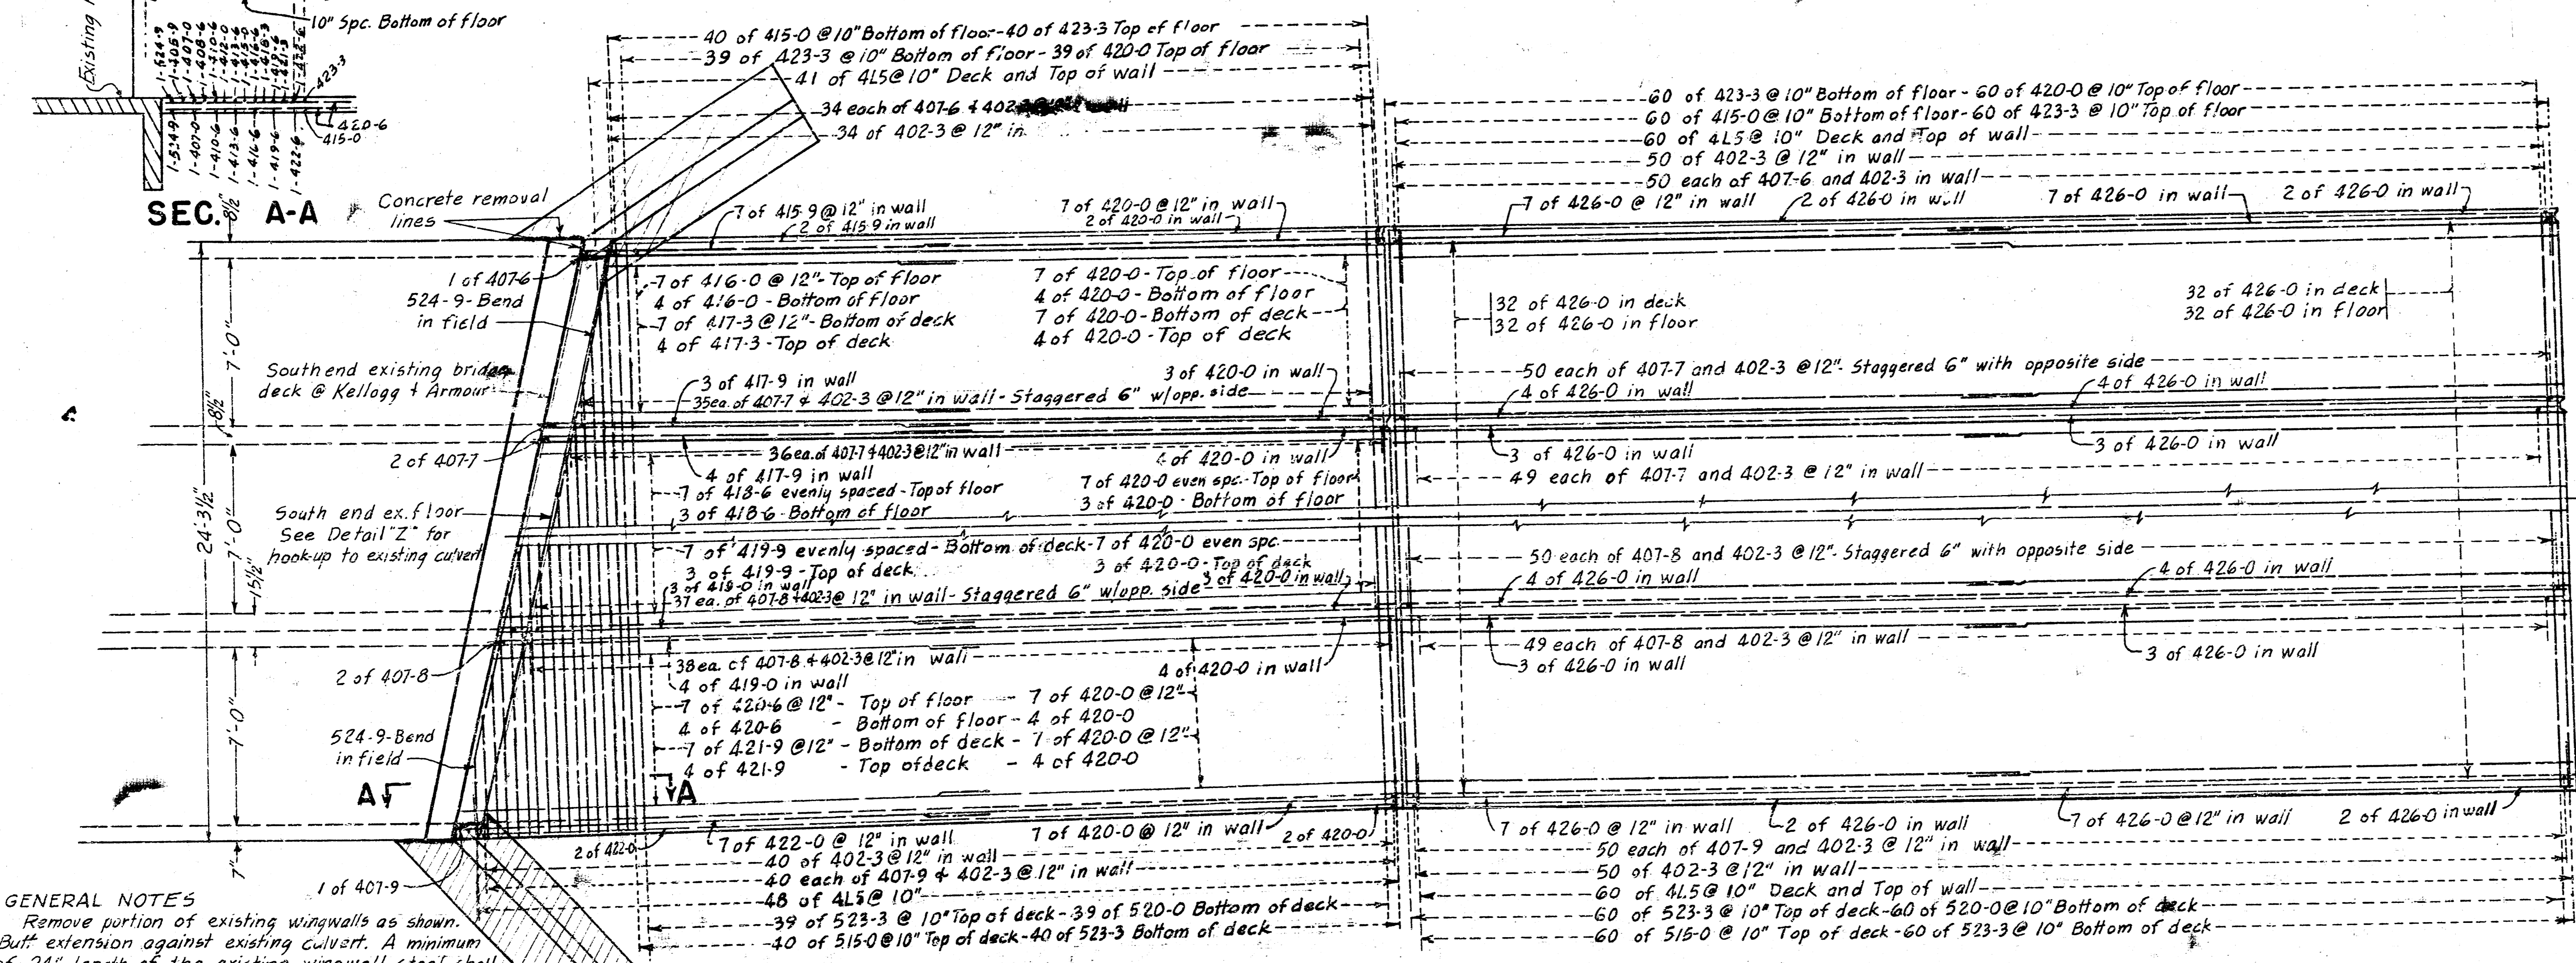 Existing
10" Spc. Bottom of floor
1-524-9
1-405-9
1-407-0
1-408-6
1-410-6
1-412-0
1-413-6
1-415-0
1-416-6
1-418-3
1-419-6
1-421-3
1-422-6
423-3
420-6
415-0
1-524-9
1-407-0
1-410-6
1-413-6
1-416-6
1-419-6
1-422-6
SEC. A-A
8½"
40 of 415-0 @10" Bottom of floor-40 of 423-3 Top of floor
39 of 423-3 @ 10" Bottom of floor - 39 of 420-0 Top of floor
41 of 4L5@ 10" Deck and Top of wall
34 each of 407-6 & 402-3
34 of 402-3 @ 12" in
60 of 423-3 @ 10" Bottom of floor - 60 of 420-0 @ 10" Top of floor
60 of 415-0 @ 10" Bottom of floor-60 of 423-3 @ 10" Top of floor
60 of 4L5 @ 10" Deck and Top of wall
50 of 402-3 @ 12" in wall
50 each of 407-6 and 402-3 in wall
Concrete removal
lines
7 of 415-9 @ 12" in wall
2 of 415-9 in wall
7 of 420-0 @ 12" in wall
2 of 420-0 in wall
7 of 426-0 @ 12" in wall
2 of 426-0 in wall
7 of 426-0 in wall
2 of 426-0 in wall
1 of 407-6
524-9-Bend
in field
South end existing bridge
deck @ Kellogg & Armour
2 of 407-7
South end ex. floor
See Detail "Z" for
hook-up to existing culvert
2 of 407-8
524-9-Bend
in field
24'-3½"
7'-0"
8½"
7'-0"
15½"
7'-0"
7"
7 of 416-0 @ 12"-Top of floor
4 of 416-0 - Bottom of floor
7 of 417-3 @ 12"-Bottom of deck
4 of 417-3 -Top of deck
7 of 420-0-Top of floor
4 of 420-0-Bottom of floor
7 of 420-0-Bottom of deck
4 of 420-0-Top of deck
32 of 426-0 in deck
32 of 426-0 in floor
32 of 426-0 in deck
32 of 426-0 in floor
3 of 417-9 in wall
3 of 420-0 in wall
35ea. of 407-7 & 402-3 @12" in wall - Staggered 6" w/opp. side
50 each of 407-7 and 402-3 @12"- Staggered 6" with opposite side
4 of 426-0 in wall
4 of 426-0 in wall
36ea. of 407-7 & 402-3@12" in wall
4 of 417-9 in wall
4 of 420-0 in wall
3 of 426-0 in wall
3 of 426-0 in wall
7 of 418-6 evenly spaced-Top of floor
3 of 418-6-Bottom of floor
7 of 420-0 even spc.-Top of floor
3 of 420-0 - Bottom of floor
49 each of 407-7 and 402-3 @ 12" in wall
7 of 419-9 evenly spaced - Bottom of deck-7 of 420-0 even spc.
3 of 419-9 -Top of deck
3 of 420-0-Top of deck
3 of 419-0 in wall
3 of 420-0 in wall
37 ea. of 407-8 & 402-3@ 12" in wall- Staggered 6" w/opp. side
50 each of 407-8 and 402-3 @12"- Staggered 6" with opposite side
4 of 426-0 in wall
4 of 426-0 in wall
38ea. of 407-8 & 402-3@12" in wall
4 of 419-0 in wall
4 of 420-0 in wall
49 each of 407-8 and 402-3 @12" in wall
3 of 426-0 in wall
3 of 426-0 in wall
7 of 420-6 @ 12" - Top of floor - 7 of 420-0 @ 12"
4 of 420-6 - Bottom of floor - 4 of 420-0
7 of 421-9 @12" - Bottom of deck - 7 of 420-0 @ 12"
4 of 421-9 - Top of deck - 4 of 420-0
A
A
2 of 422-0
7 of 422-0 @ 12" in wall
7 of 420-0 @ 12" in wall
2 of 420-0
7 of 426-0 @ 12" in wall
2 of 426-0 in wall
7 of 426-0 @ 12" in wall
2 of 426-0 in wall
40 of 402-3@ 12" in wall
40 each of 407-9 & 402-3 @12" in wall
48 of 4L5@ 10"
39 of 523-3 @ 10" Top of deck-39 of 520-0 Bottom of deck
40 of 515-0 @10" Top of deck-40 of 523-3 Bottom of deck
50 each of 407-9 and 402-3 @ 12" in wall
50 of 402-3@ 12" in wall
60 of 4L5@ 10" Deck and Top of wall
60 of 523-3 @ 10" Top of deck-60 of 520-0@ 10" Bottom of deck
60 of 515-0 @ 10" Top of deck -60 of 523-3@ 10" Bottom of deck
1 of 407-9
GENERAL NOTES
Remove portion of existing wingwalls as shown.
Butt extension against existing culvert. A minimum
of 24" length of the existing wingwall steel shall